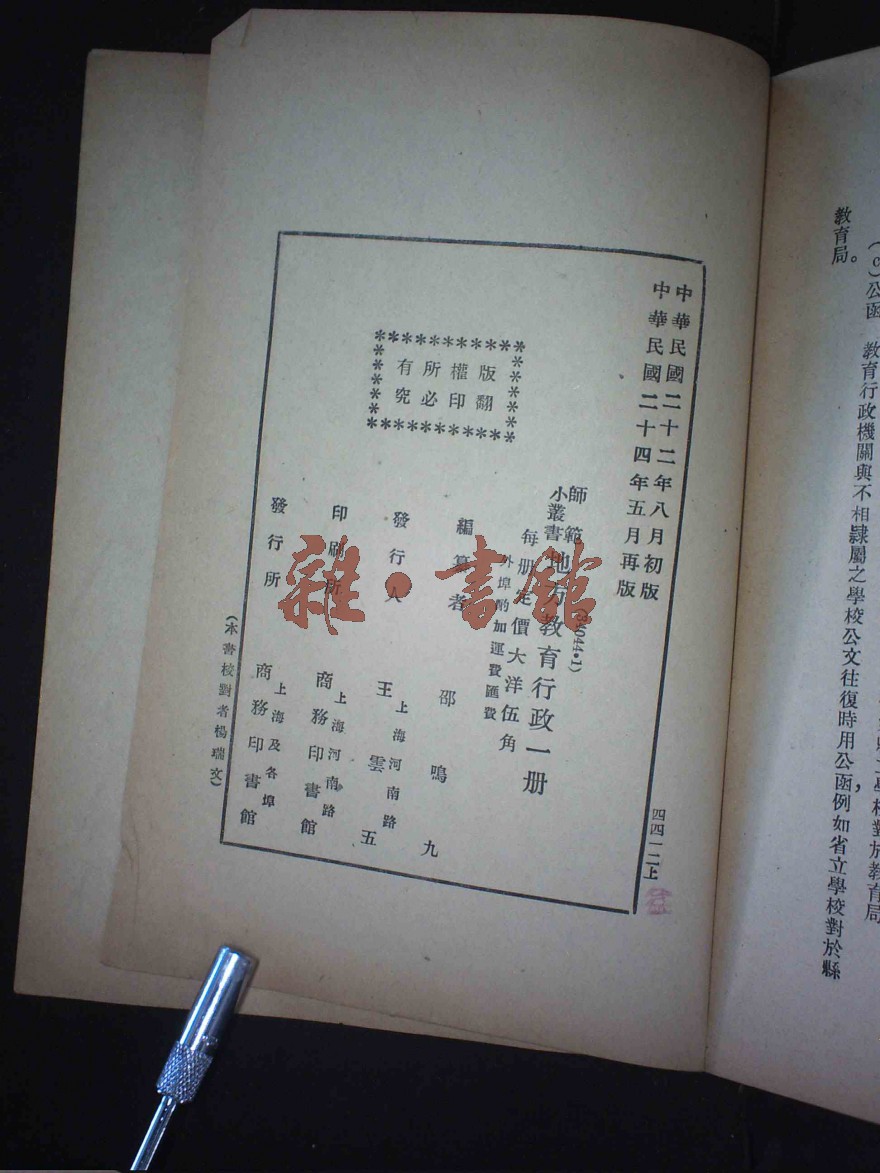 教育局。
(c)公函　教育行政機關與不相隸屬之學校公文往復時用公函例如省立學校對於縣
中華民國二十二年八月初版
中華民國二十四年五月再版
四四一二上
(34044·1)
師範小叢書 地方教育行政一册
每册定價大洋伍角
外埠酌加運費匯費
版權所有
翻印必究
編纂者　邵鳴九
發行人　王雲五
上海河南路
印刷所　商務印書館
上海河南路
發行所　商務印書館
上海及各埠
(本書校對者楊瑞文)
雜·書館